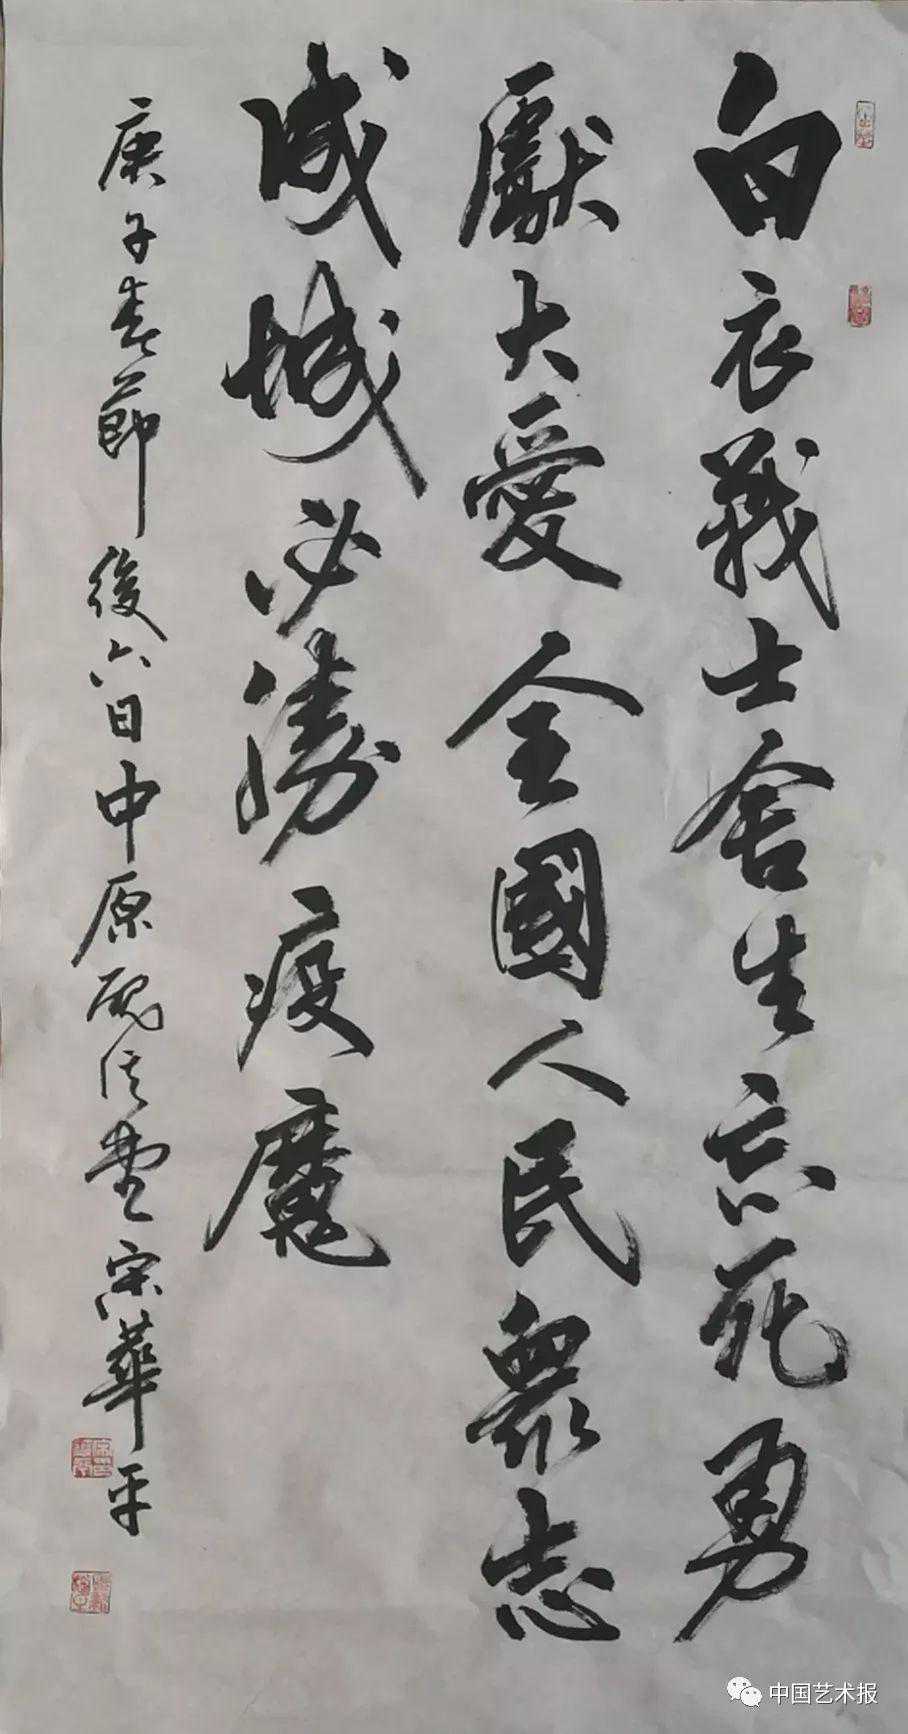 白衣義士舍生忘死勇
獻大愛全國人民衆志
成城必勝疫魔
庚子春節後六日中原 宋華平
中国艺术报